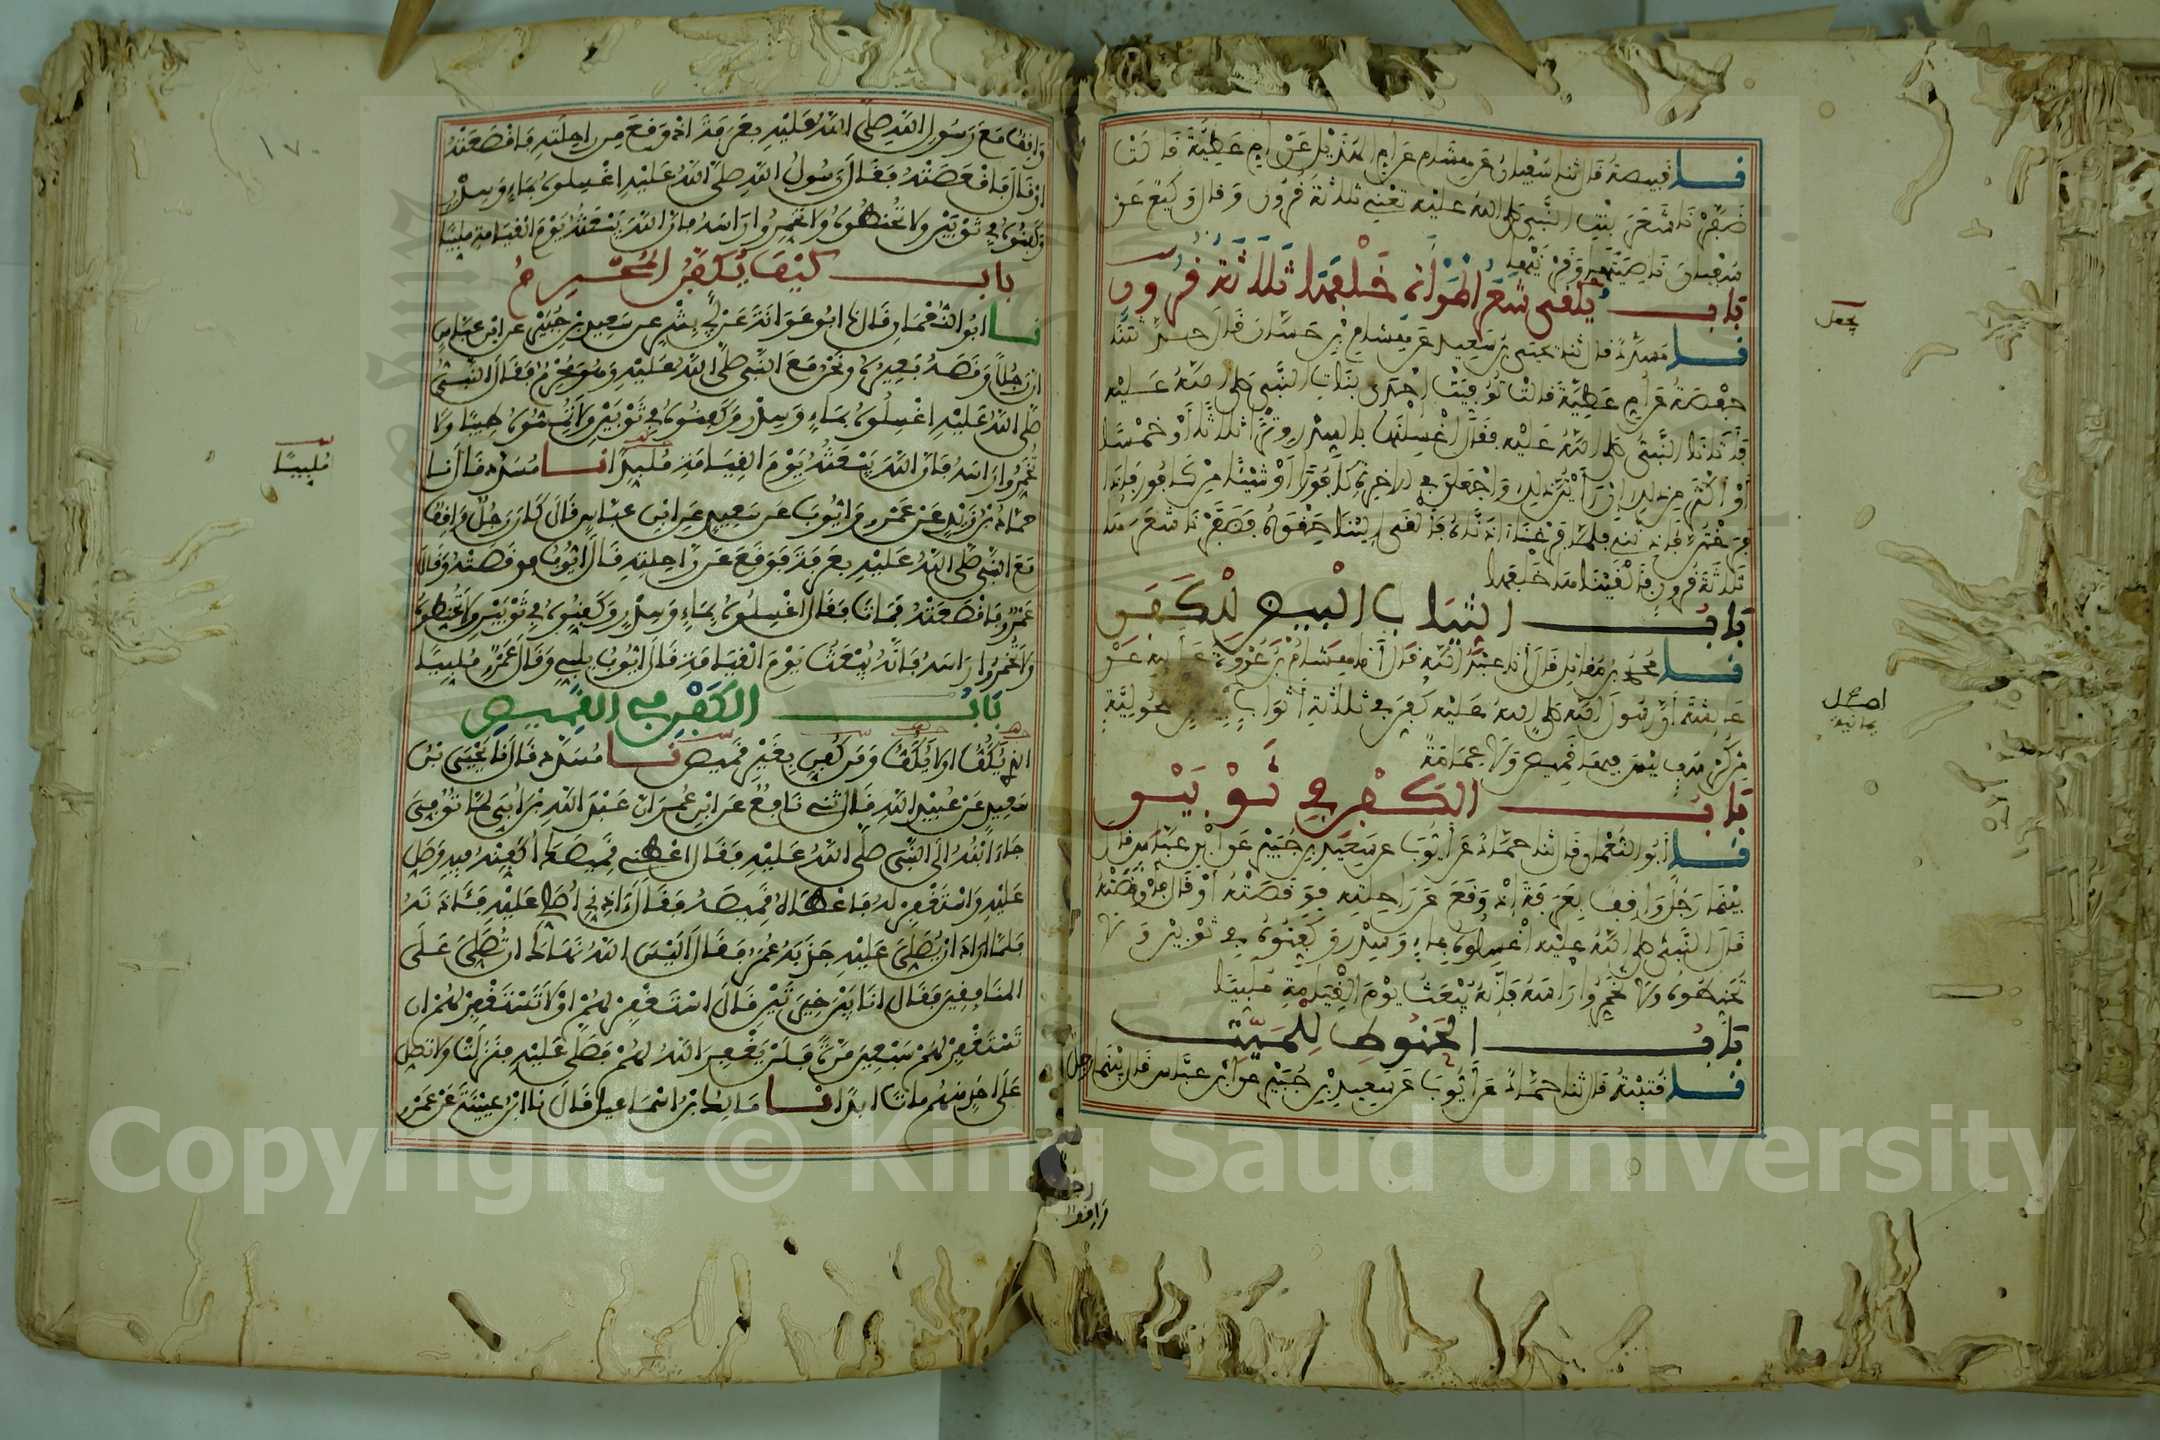 نا قبيصة قال ثنا سفيان عن هشام عن ام الهذيل عن ام عطية قالت
ضفرنا شعر بنت النبي صلى الله عليه تعني ثلاثة قرون وقال وكيع عن
سفيان ناصيتها وقرنيها
باب يلقى شعر المرأة خلفها ثلاثة قرون
نا مسدد قال ثنا يحيى بن سعيد عن هشام بن حسان قال حدثتنا
حفصة عن ام عطية قالت توفيت احدى بنات النبي صلى الله عليه
فأتانا النبي صلى الله عليه فقال اغسلنها بالسدر وترا ثلاثا أو خمسا
أو أكثر من ذلك ان رأيتن ذلك واجعلن في الاخرة كافورا أو شيئا من كافور فإذا
فرغتن فآذنني فلما فرغنا آذناه فألقى إلينا حقوه فضفرنا شعرها
ثلاثة قرون فألقيناها خلفها
باب الثياب البيض للكفن
نا محمد بن مقاتل قال أنا عبد الله قال أنا هشام بن عروة عن أبيه عن
عائشة أن رسول الله صلى الله عليه كفن في ثلاثة أثواب سحولية
من كرسف ليس فيها قميص ولا عمامة
باب الكفن في ثوبين
نا أبو النعمان قال ثنا حماد عن أيوب عن سعيد بن جبير عن ابن عباس قال
بينما رجل واقف بعرفة إذ وقع عن راحلته فوقصته أو قال فأوقصته
قال النبي صلى الله عليه اغسلوه بماء وسدر وكفنوه في ثوبين ولا
تحنطوه ولا تخمروا راسه فإنه يبعث يوم القيامة ملبيا
باب الحنوط للميت
نا قتيبة قال ثنا حماد عن أيوب عن سعيد بن جبير عن ابن عباس قال بينما رجل
يجعل
اصل
واقف
واقف مع رسول الله صلى الله عليه بعرفة اذ وقع من راحلته فاقصعته
او قال فاقعصته فقال رسول الله صلى الله عليه اغسلوه بماء وسدر
وكفنوه في ثوبين ولا تحنطوه ولا تخمروا راسه فان الله يبعثه يوم القيامة ملبيا
باب كيف يكفن المحرم
نا ابو النعمان قال نا ابو عوانة عن ابي بشر عن سعيد بن جبير عن ابن عباس
ان رجلا وقصه بعيره ونحن مع النبي صلى الله عليه وهو محرم فقال النبي
صلى الله عليه اغسلوه بماء وسدر وكفنوه في ثوبين ولا تمسوه طيبا ولا
تخمروا راسه فان الله يبعثه يوم القيامة ملبدا نا مسدد قال نا
حماد بن زيد عن عمرو وايوب عن سعيد عن ابن عباس قال كان رجل واقفا
مع النبي صلى الله عليه بعرفة فوقع عن راحلته قال ايوب فوقصته وقال
عمرو فاقصعته فمات فقال اغسلوه بماء وسدر وكفنوه في ثوبين ولا تحنطوه
ولا تخمروا راسه فانه يبعث يوم القيامة قال ايوب يلبي وقال عمرو ملبيا
باب الكفن في القميص
الذي يكف او لا يكف ومن كفن بغير قميص نا مسدد قال نا يحيى بن
سعيد عن عبيد الله قال ثني نافع عن ابن عمر ان عبد الله بن ابي لما توفي
جاء ابنه الى النبي صلى الله عليه فقال اعطني قميصك اكفنه فيه وصل
عليه واستغفر له فاعطاه قميصه فقال آذني اصلي عليه فآذنه
فلما اراد ان يصلي عليه جذبه عمر فقال اليس الله نهاك ان تصلي على
المنافقين فقال انا بين خيرتين قال استغفر لهم او لا تستغفر لهم ان
تستغفر لهم سبعين مرة فلن يغفر الله لهم فصلى عليه فنزلت ولا تصل
على احد منهم مات ابدا نا مالك بن اسماعيل قال نا ابن عيينة عن عمرو
ملبيا
١٧٠
Copyright © King Saud University